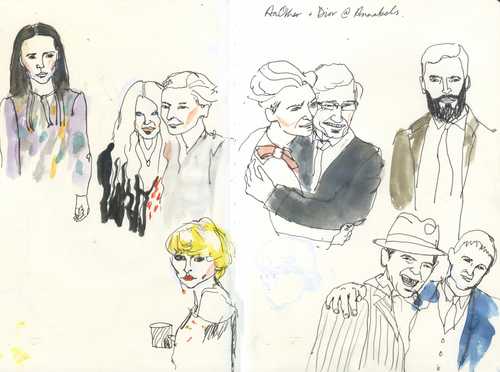 AnOther + Dior @ Annabels.